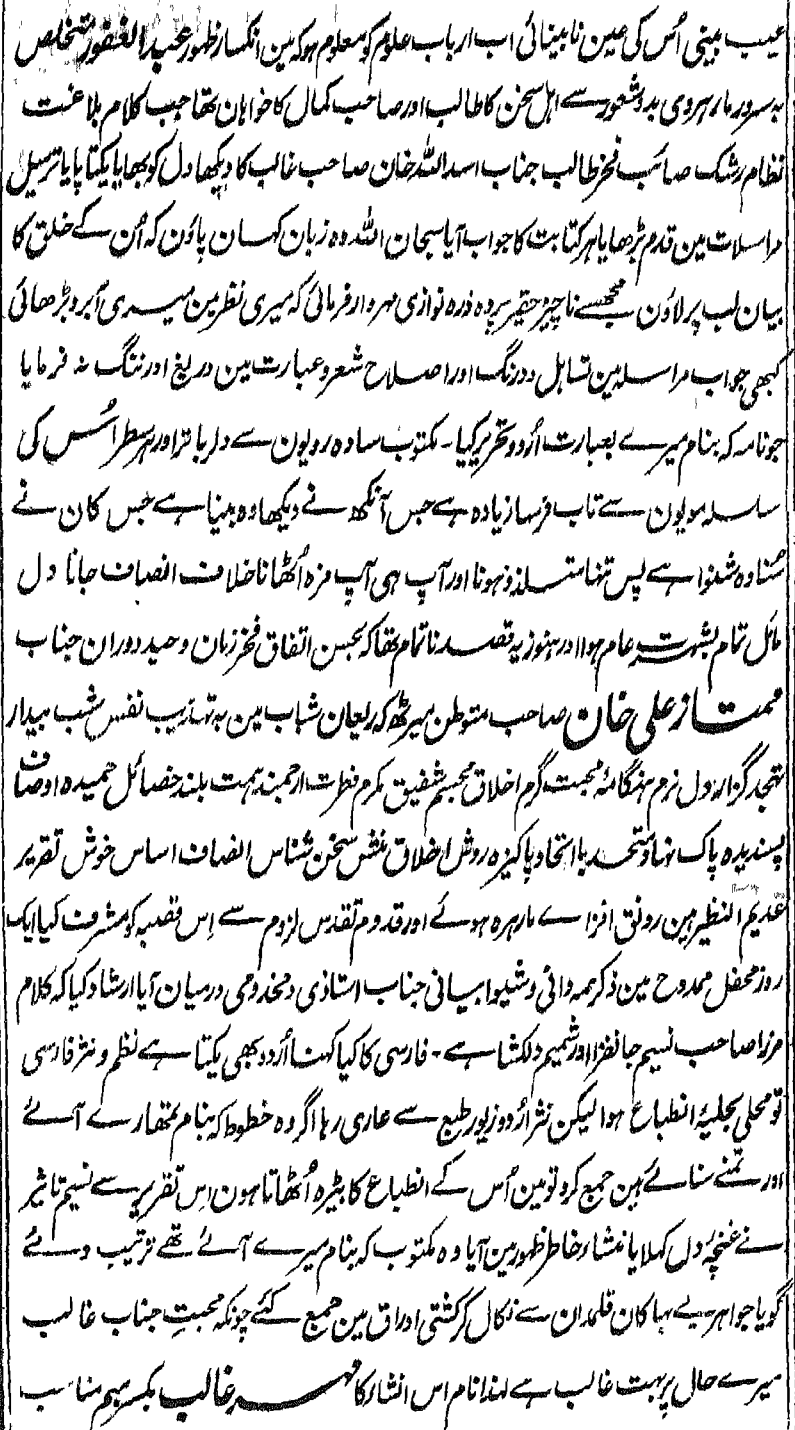 عیب بینی اُس کی عین نابینائی اب ارباب علوم کو معلوم ہو کہ مین انکسار ظہور عبد الغفور متخلص
بہ سرور مارہروی بدو شعور سے اہل سخن کا طالب اور صاحب کمال کا خواہان تھا جب کلام بلاغت
نظام رشک صائب فخر طالب جناب اسد اللہ خان صاحب غالب کا دیکھا دل کو بھایا یکتا پایا ترسیل
مراسلات مین قدم بڑھایا ہر کتابت کا جواب آیا سبحان اللہ وہ زبان کہان پاؤن کہ اُن کے خلق کا
بیان لب پر لاؤن مجھسے ناچیز حقیر پر وہ ذرہ نوازی مہروار فرمائی کہ میری نظر مین میری آبرو بڑھائی
کبھی جواب مراسلہ مین تساہل و درنگ اور اصلاح شعر و عبارت مین دریغ اور ننگ نہ فرمایا
جو نامہ کہ بنام میرے بعبارت اُردو تحریر کیا۔ مکتوب سادہ رویون سے دلربا تر اور ہر سطر اُس کی
سلسلہ مویون سے تاب فرسا زیادہ ہے جس آنکھ نے دیکھا وہ بینا ہے جس کان نے
سُنا وہ شنوا ہے پس تنہا متلذذ ہونا اور آپ ہی آپ مزہ اُٹھانا خلاف انصاف جانا دل
مائل تمام بشہرت عام ہوا اور ہنوز یہ قصد ناتمام تھا کہ بحسن اتفاق فخر زمان وحید دوران جناب
ممتاز علی خان صاحب متوطن میرٹھ کہ ریعان شباب مین بہ تہذیب نفس شب بیدار
تہجد گزار دل نرم ہنگامۂ محبت گرم اخلاق مجسم شفیق مکرم فطرت ارجمند ہمت بلند خصائل حمیدہ اوصاف
پسندیدہ پاک نہاد متحد بااتحاد پاکیزہ روش اخلاق منش سخن شناس انصاف اساس خوش تقریر
عدیم النظیر ہین رونق افزاے مارہرہ ہوئے اور قدوم تقدس لزوم سے اِس قصبہ کو مشرف کیا ایک
روز محفل ممدوح مین ذکر ہمہ دانی و شیوا بیانی جناب استاذی و مخدومی درمیان آیا ارشاد کیا کہ کلام
مرزا صاحب نسیم جانفزا اور شمیم دلکشا ہے۔ فارسی کا کیا کہنا اُردو بھی یکتا ہے نظم و نثر فارسی
تو محلی بحلیۂ انطباع ہوا لیکن نثر اُردو زیور طبع سے عاری رہا اگر وہ خطوط کہ بنام تمھارے آئے
اور تمنے سنائے ہین جمع کرو تو مین اُس کے انطباع کا بیڑہ اُٹھاتا ہون اِس تقریر سے نسیم تاثیر
نے غنچۂ دل کھلایا منشاء خاطر ظہور مین آیا وہ مکتوب کہ بنام میرے آئے تھے ترتیب دئے
گویا جواہر بے بہا کان قلمدان سے نکال کر کشتی اوراق مین جمع کئے چونکہ محبتِ جناب غالب
میرے حال پر بہت غالب ہے لہذا نام اس انشاء کا مہر غالب بکسر میم مناسب